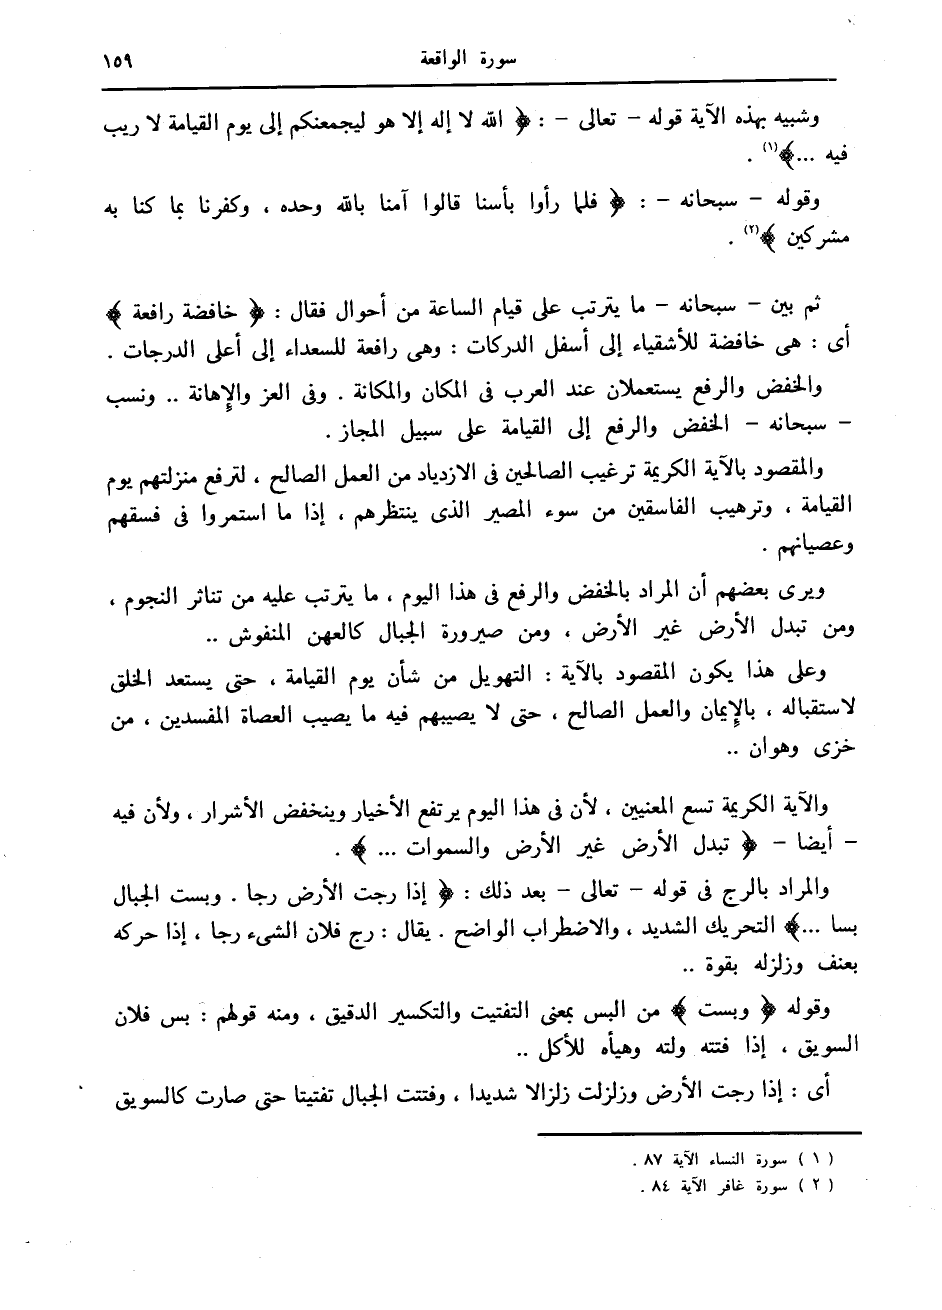 سورة الواقعة ١٥٩
وشبيه بهذه الآية قوله - تعالى - : ﴿ الله لا إله إلا هو ليجمعنكم إلى يوم القيامة لا ريب
فيه ...﴾(١) .
وقوله - سبحانه - : ﴿ فلما رأوا بأسنا قالوا آمنا بالله وحده ، وكفرنا بما كنا به
مشركين ﴾(٢) .
ثم بين - سبحانه - ما يترتب على قيام الساعة من أحوال فقال : ﴿ خافضة رافعة ﴾
أى : هى خافضة للأشقياء إلى أسفل الدركات : وهى رافعة للسعداء إلى أعلى الدرجات .
والخفض والرفع يستعملان عند العرب فى المكان والمكانة . وفى العز والإهانة .. ونسب
- سبحانه - الخفض والرفع إلى القيامة على سبيل المجاز .
والمقصود بالآية الكريمة ترغيب الصالحين فى الازدياد من العمل الصالح ، لترفع منزلتهم يوم
القيامة ، وترهيب الفاسقين من سوء المصير الذى ينتظرهم ، إذا ما استمروا فى فسقهم
وعصيانهم .
ويرى بعضهم أن المراد بالخفض والرفع فى هذا اليوم ، ما يترتب عليه من تناثر النجوم ،
ومن تبدل الأرض غير الأرض ، ومن صيرورة الجبال كالعهن المنفوش ..
وعلى هذا يكون المقصود بالآية : التهويل من شأن يوم القيامة ، حتى يستعد الخلق
لاستقباله ، بالإيمان والعمل الصالح ، حتى لا يصيبهم فيه ما يصيب العصاة المفسدين ، من
خزى وهوان ..
والآية الكريمة تسع المعنيين ، لأن فى هذا اليوم يرتفع الأخيار وينخفض الأشرار ، ولأن فيه
- أيضا - ﴿ تبدل الأرض غير الأرض والسموات ... ﴾ .
والمراد بالرج فى قوله - تعالى - بعد ذلك : ﴿ إذا رجت الأرض رجا . وبست الجبال
بسا ...﴾ التحريك الشديد ، والاضطراب الواضح . يقال : رج فلان الشىء رجا ، إذا حركه
بعنف وزلزله بقوة ..
وقوله ﴿ وبست ﴾ من البس بمعنى التفتيت والتكسير الدقيق ، ومنه قولهم : بس فلان
السويق ، إذا فتته ولته وهيأه للأكل ..
أى : إذا رجت الأرض وزلزلت زلزالا شديدا ، وفتتت الجبال تفتيتا حتى صارت كالسويق
( ١ ) سورة النساء الآية ٨٧ .
( ٢ ) سورة غافر الآية ٨٤ .